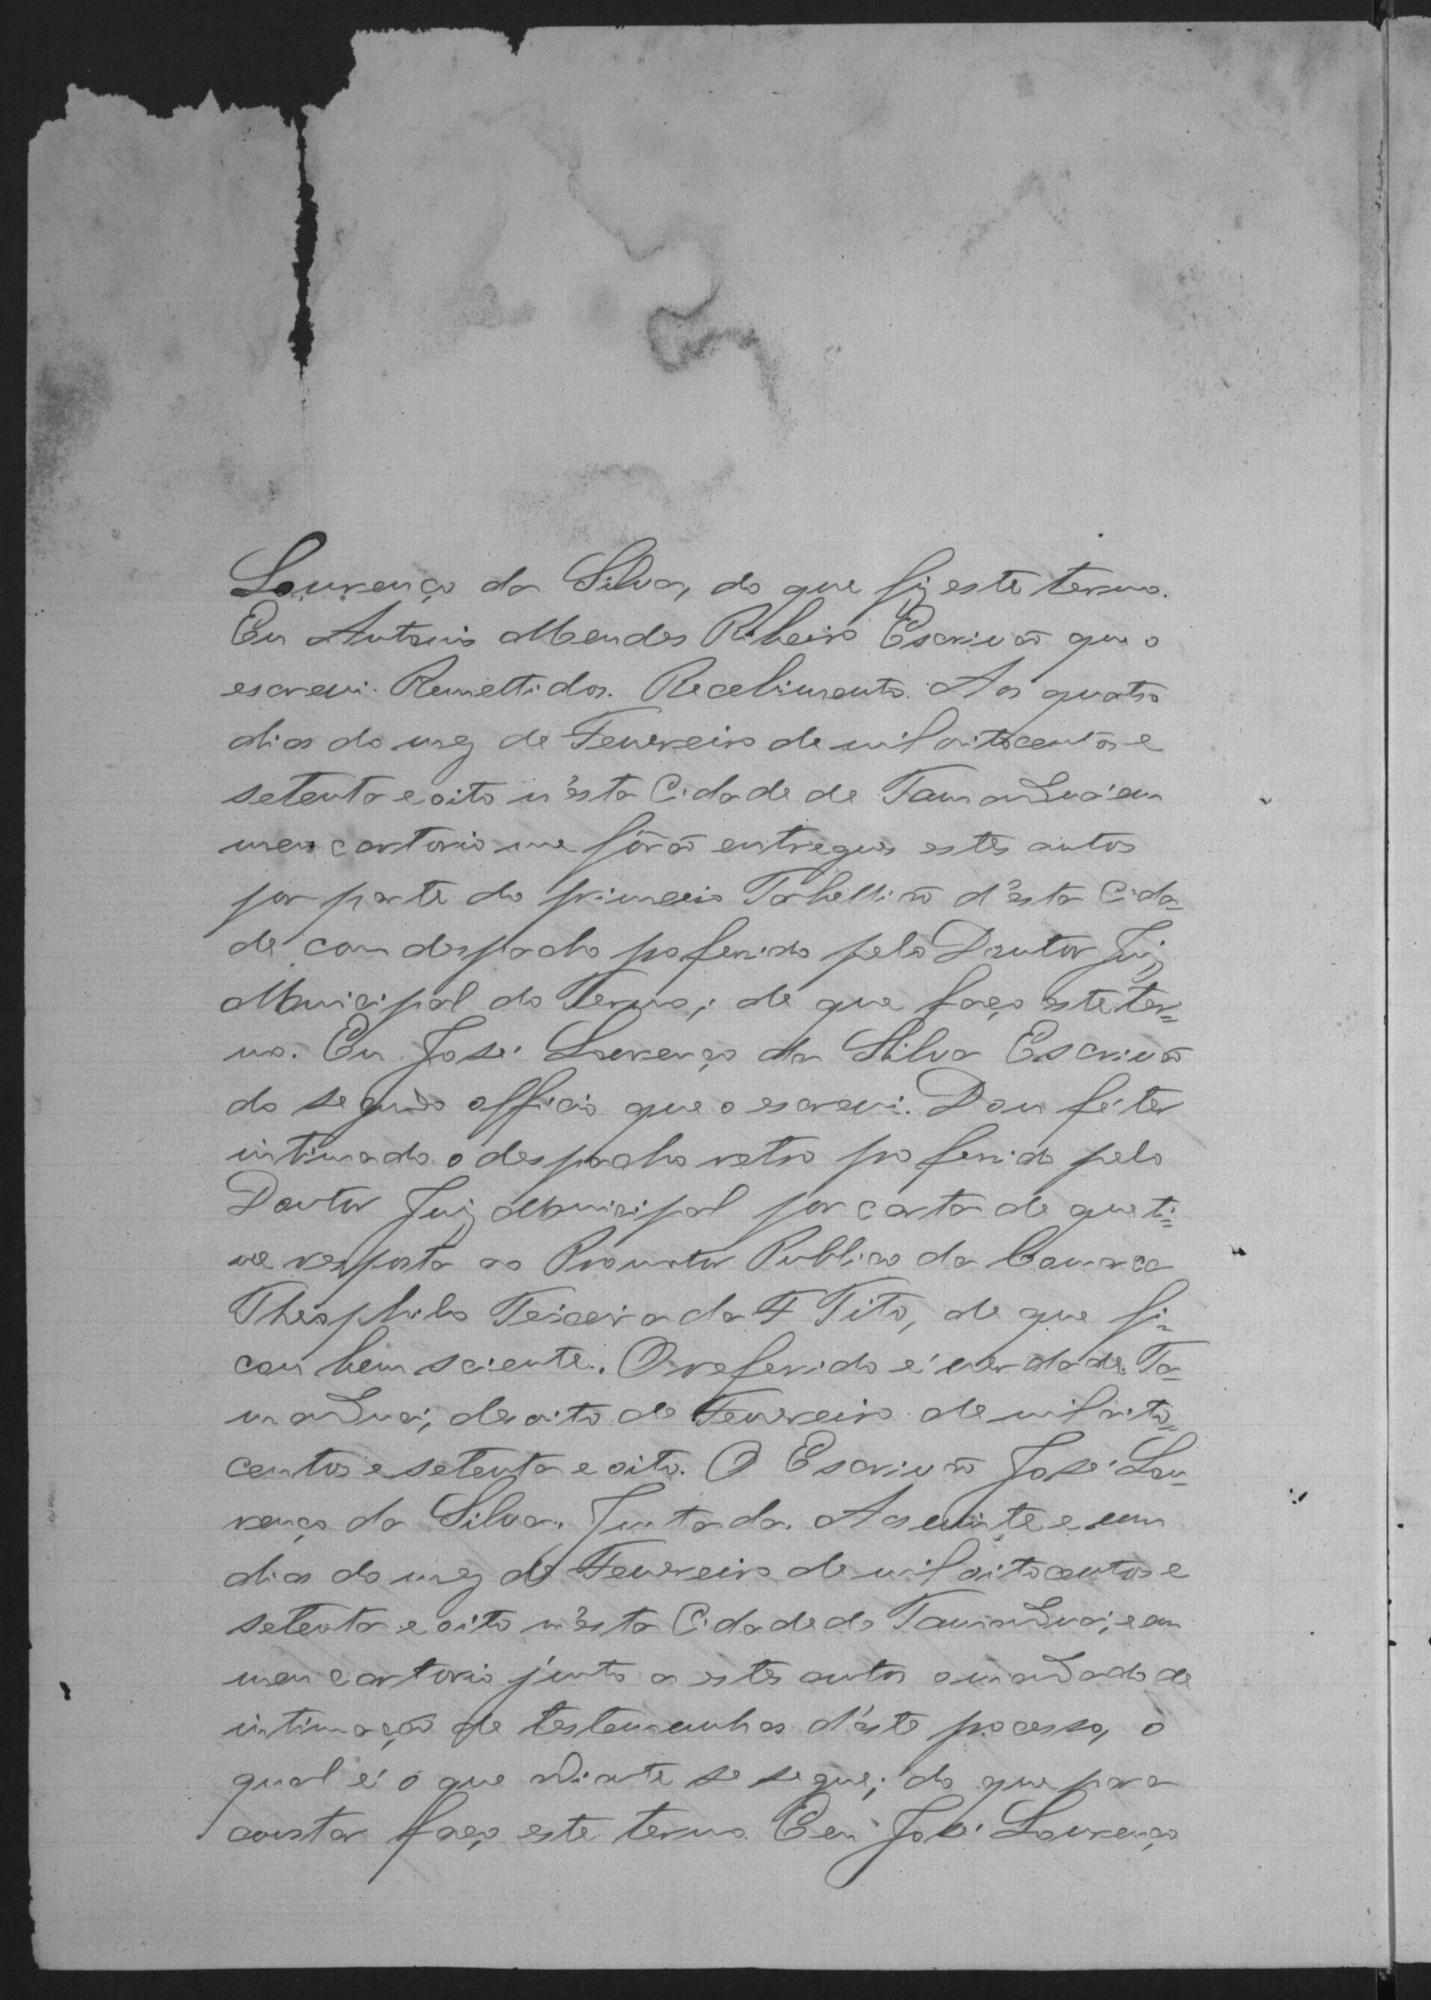 Lourenço da Silva, do que fiz este termo.
Eu Antonio Mendes Ribeiro Escrivão que o
escrevi. Remettidos. Recebimento. Aos quatro
dias do mez de Fevereiro de mil oitocentos e
setenta e oito n'esta Cidade de Tamanduá em
meu cartorio me fôrão entregues estes autos
por parte do primeiro Tabellião d'esta Cida-
de com despacho proferido pelo Doutor Juiz
Municipal do Termo; de que faço este ter-
mo. Eu José Lourenço da Silva Escrivão
do segundo officio que o escrevi. Dou fé ter
intimado o despacho retro proferido pelo
Doutor Juiz Municipal por carta de que ti-
ve resposta ao Promotor Publico da Comarca
Theophilo Teixeira da F Tito, de que fi-
cou bem sciente. O referido é verdade. Ta-
manduá, desoito de Fevereiro de mil oito-
centos e setenta e oito. O Escrivão José Lou-
renço da Silva. Juntada. Aos vinte e um
dias do mez de Fevereiro de mil oitocentos e
setenta e oito n'esta Cidade de Tamanduá; em
meu cartorio junto a estes autos o mandado de
intimação de testemunhas d'este processo, o
qual é o que adiante se segue; do que para
constar faço este termo. Eu José Lourenço